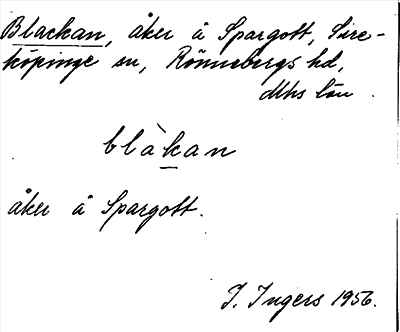 Blackan, åker å Spargott, Sire-
köpinge sn, Rönnebergs hd,
Mhs län.
blàkan
åker å Spargott.
I. Ingers 1956.